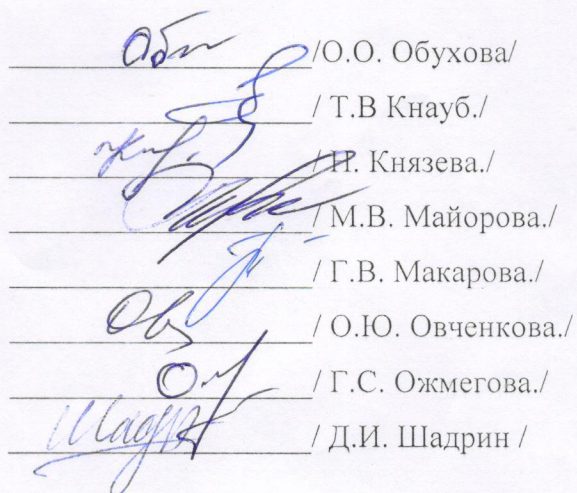 /О.О. Обухова/
/ Т.В Кнауб./
/Н. Князева./
/ М.В. Майорова./
/ Г.В. Макарова./
/ О.Ю. Овченкова./
/ Г.С. Ожмегова./
/ Д.И. Шадрин /